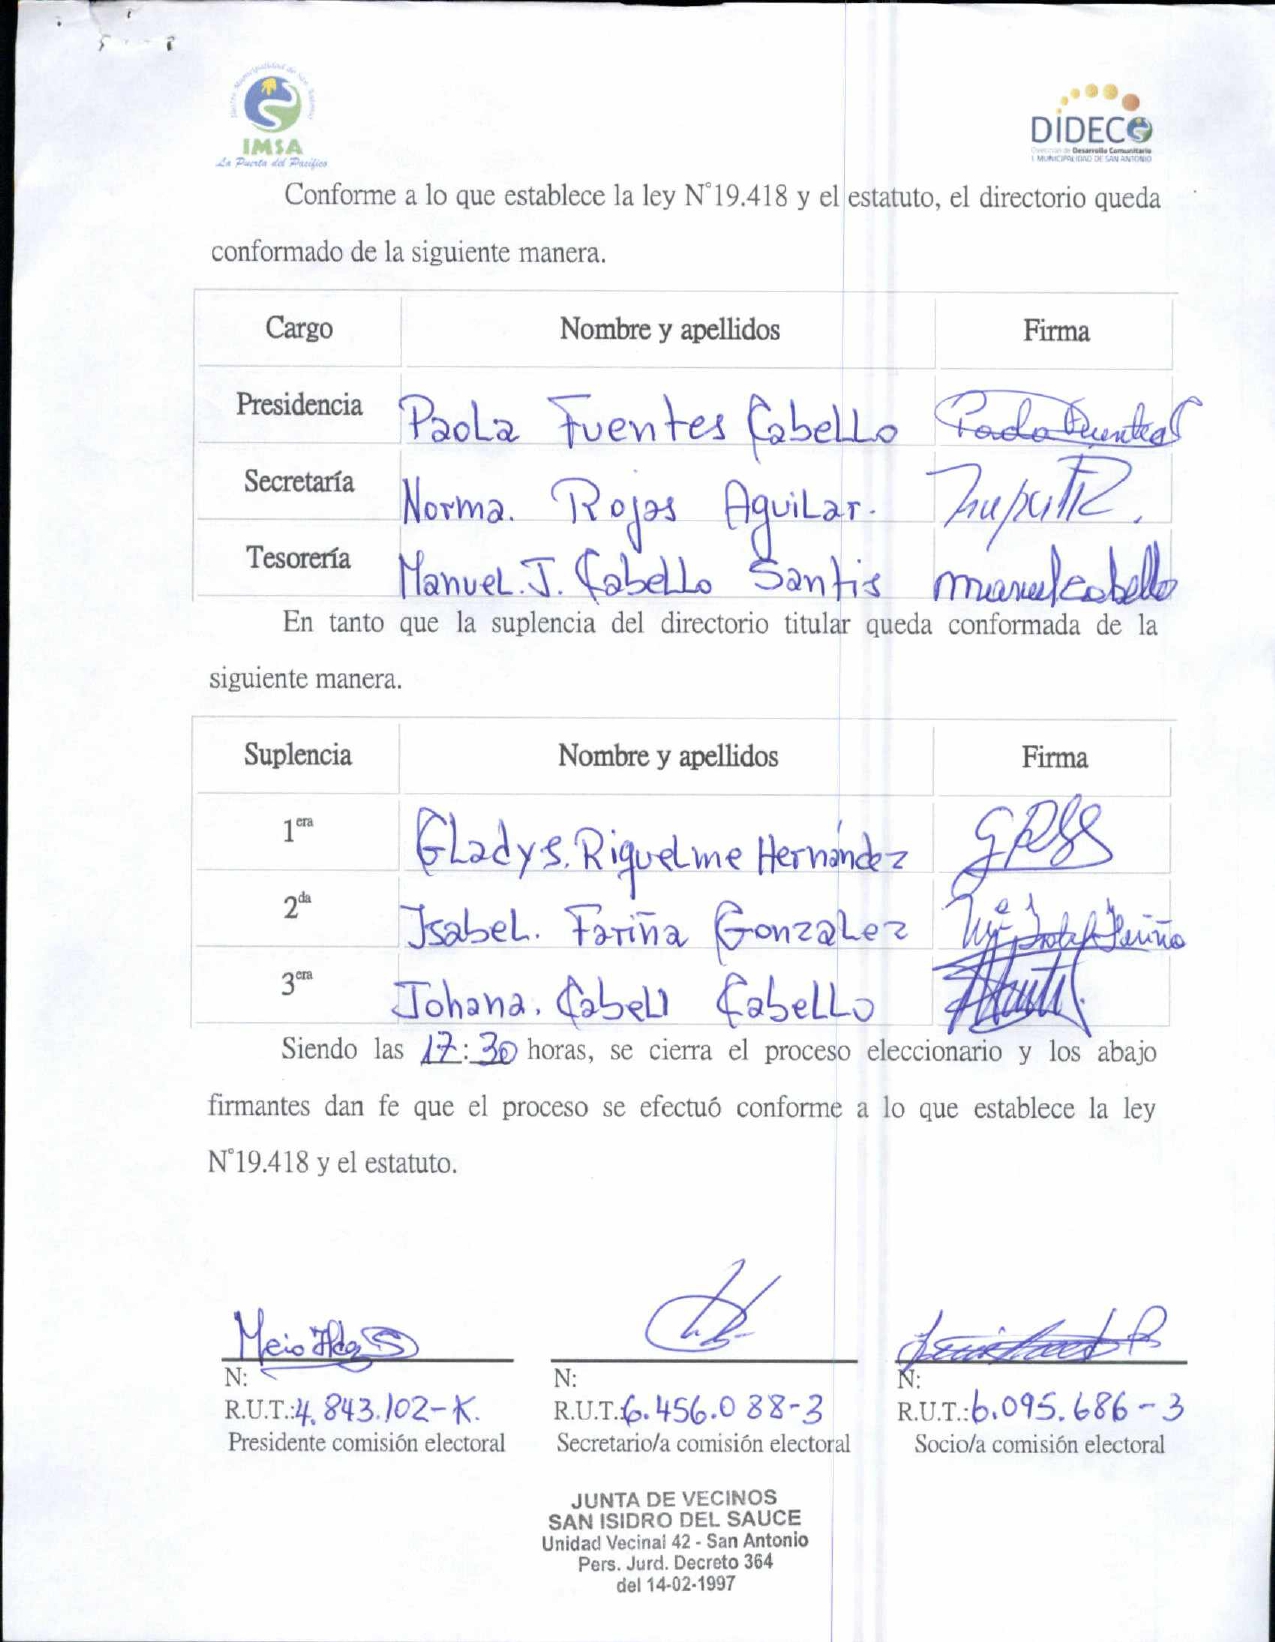 Ilustre Municipalidad de San Antonio
IMSA
La Puerta del Pacífico
DIDECO
Dirección de Desarrollo Comunitario
I. MUNICIPALIDAD DE SAN ANTONIO
Conforme a lo que establece la ley N°19.418 y el estatuto, el directorio queda
conformado de la siguiente manera.
Cargo Nombre y apellidos Firma
Presidencia Paola Fuentes Cabello Paola Fuentes C
Secretaría Norma. Rojas Aguilar.
Tesorería Manuel. J. Cabello Santis Manuel Cabello
En tanto que la suplencia del directorio titular queda conformada de la
siguiente manera.
Suplencia Nombre y apellidos Firma
1era Gladys. Riquelme Hernández
2da Isabel. Fariña Gonzalez
3era Johana. Cabell Cabello
Siendo las 17:30 horas, se cierra el proceso eleccionario y los abajo
firmantes dan fe que el proceso se efectuó conforme a lo que establece la ley
N°19.418 y el estatuto.
N: N: N:
R.U.T.:4.843.102-K. R.U.T.:6.456.038-3 R.U.T.:6.095.686-3
Presidente comisión electoral Secretario/a comisión electoral Socio/a comisión electoral
JUNTA DE VECINOS
SAN ISIDRO DEL SAUCE
Unidad Vecinal 42 - San Antonio
Pers. Jurd. Decreto 364
del 14-02-1997